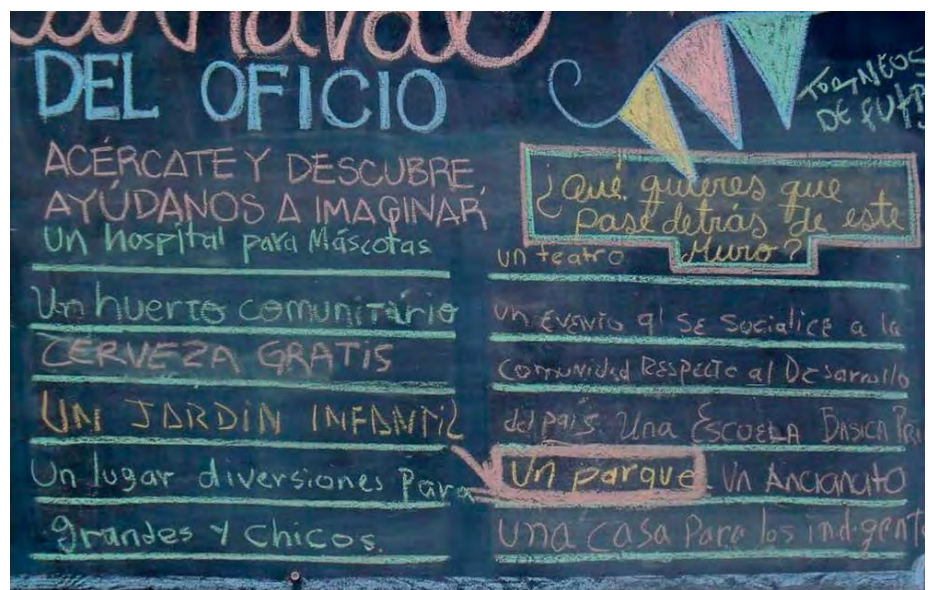 DEL OFICIO
TORNEOS
DE
ACÉRCATE Y DESCUBRE,
AYÚDANOS A IMAGINAR
¿Qué quieres que
pase detrás de este
Muro?
Un hospital para Máscotas
Un huerto comunitário
CERVEZA GRATIS
UN JARDIN INFANTIL
Un lugar diversiones Para
grandes y Chicos.
un teatro
un evento q' se socialice a la
comunidad Respecto al Desarrollo
del país. Una Escuela Basica
Un parque Un Ancianato
una casa Para los